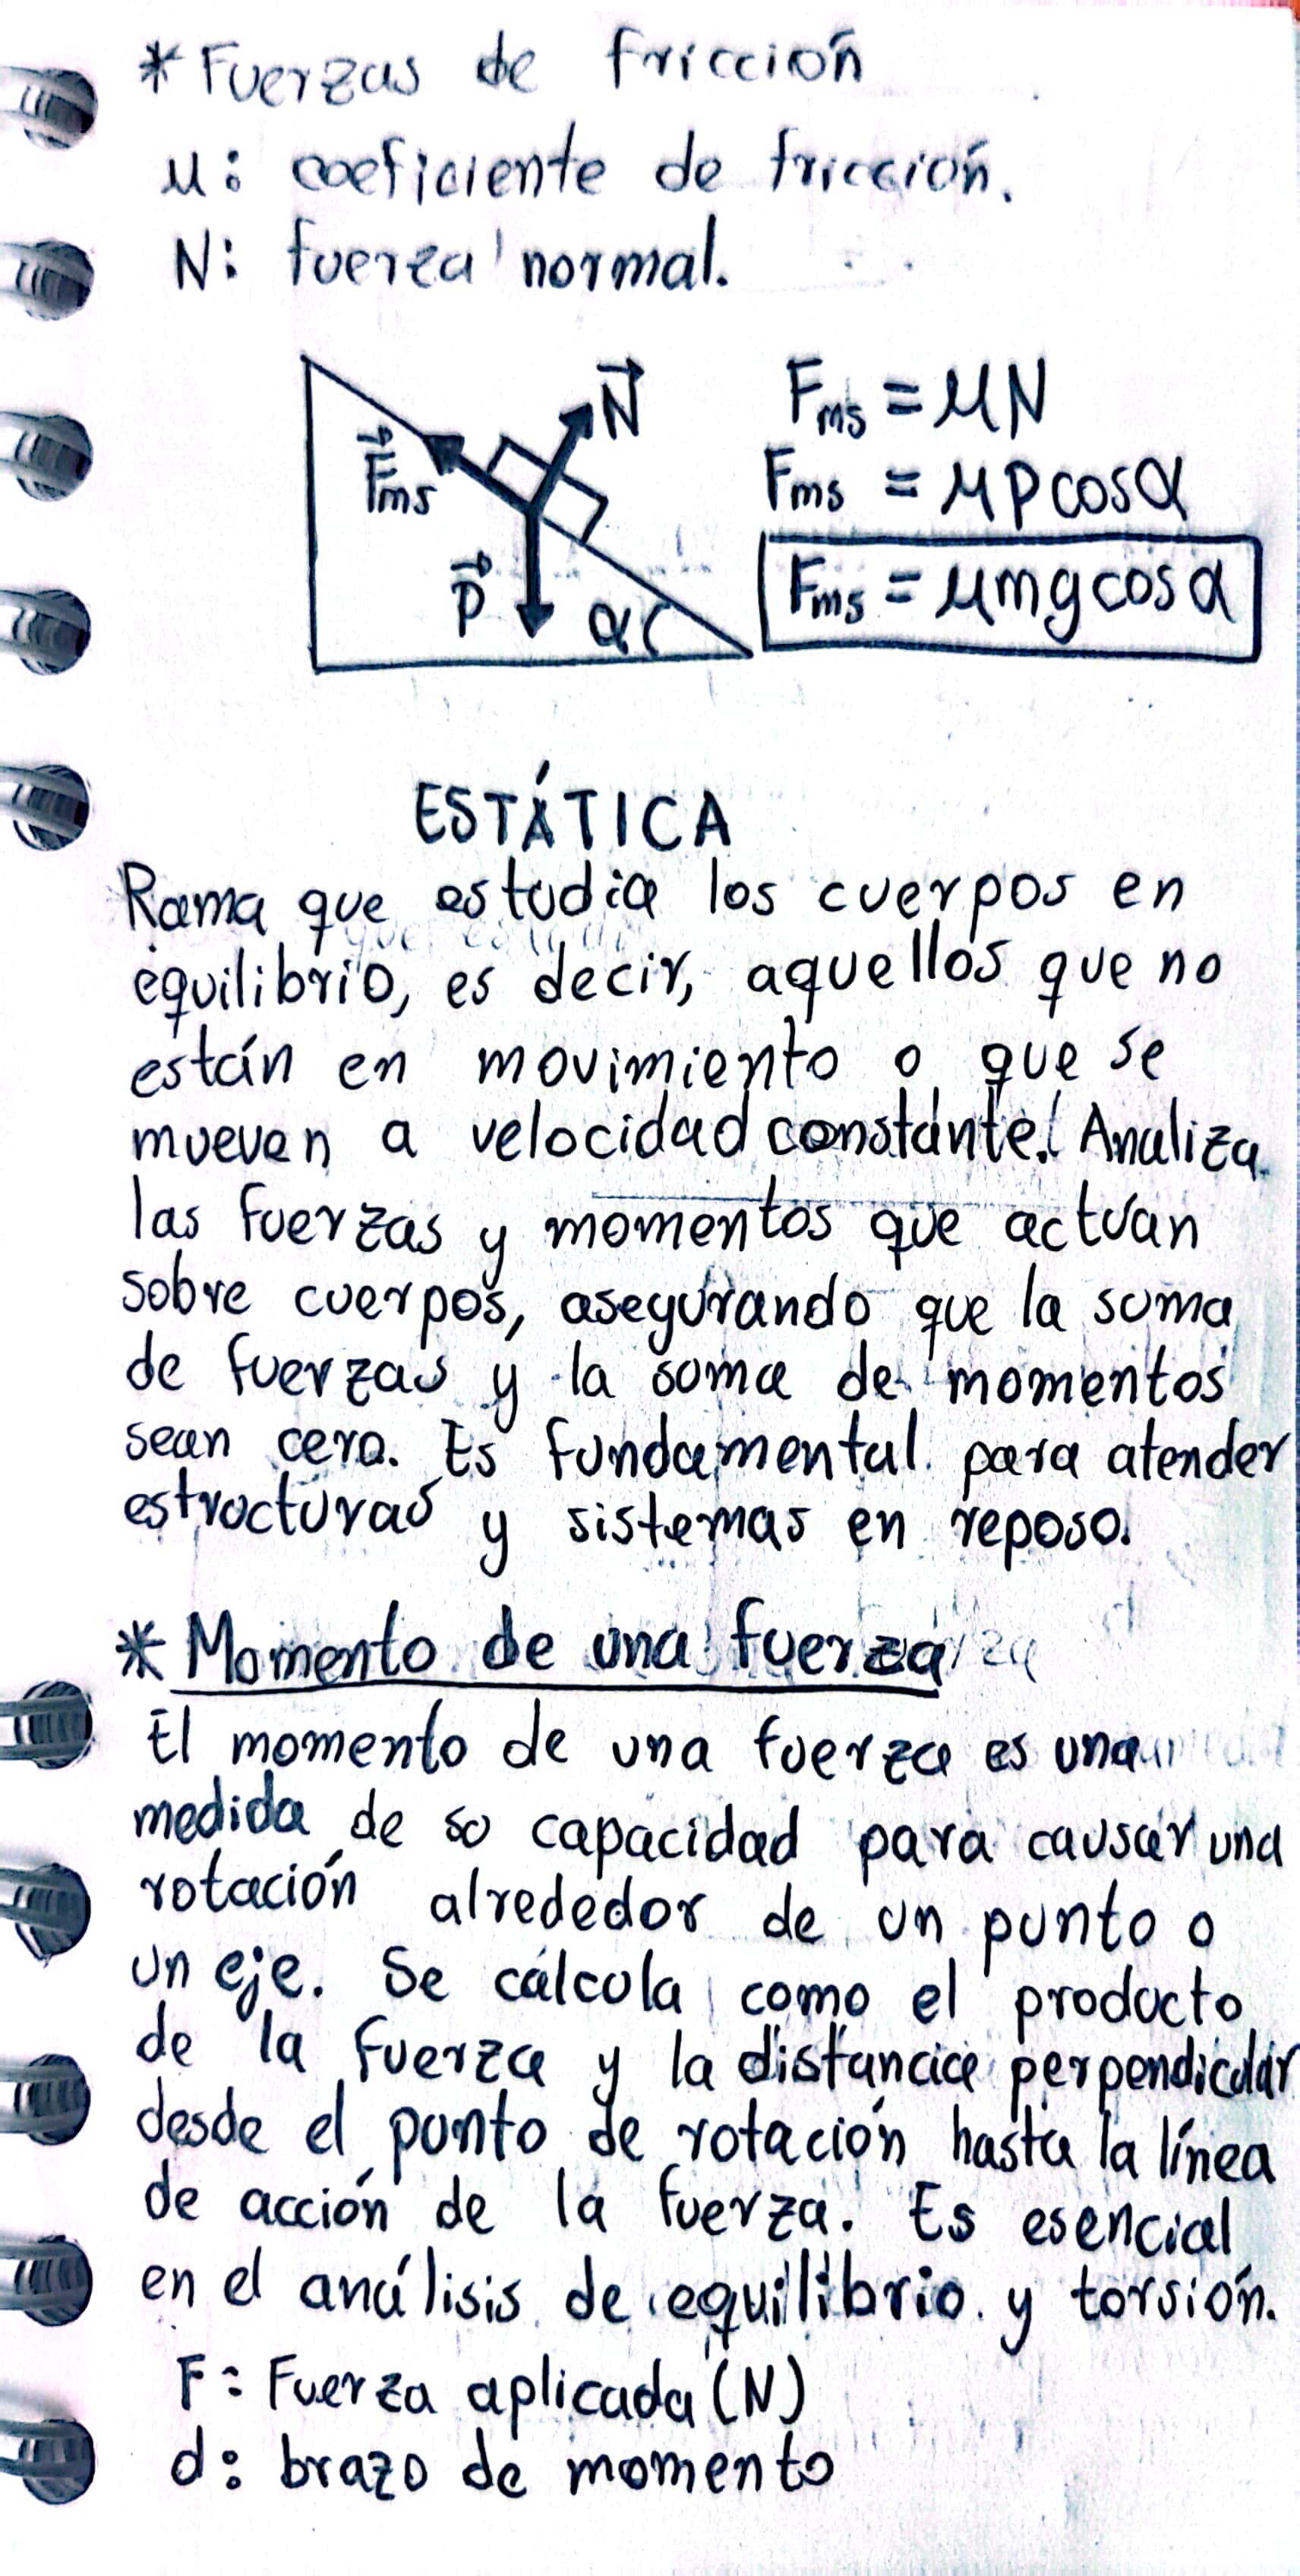 *Fuerzas de fricción
μ: coeficiente de fricción.
N: fuerza normal.
N⃗
F⃗ms
P⃗
α
Fms = μN
Fms = μPcosα
Fms = μmgcosα
ESTÁTICA
Rama que estudia los cuerpos en
equilibrio, es decir, aquellos que no
están en movimiento o que se
mueven a velocidad constante. Analiza
las fuerzas y momentos que actúan
sobre cuerpos, asegurando que la suma
de fuerzas y la suma de momentos
sean cero. Es fundamental para atender
estructuras y sistemas en reposo.
*Momento de una fuerza
El momento de una fuerza es una
medida de su capacidad para causar una
rotación alrededor de un punto o
un eje. Se cálcula como el producto
de la fuerza y la distancia perpendicular
desde el punto de rotación hasta la línea
de acción de la fuerza. Es esencial
en el análisis de equilibrio y torsión.
F: Fuerza aplicada (N)
d: brazo de momento